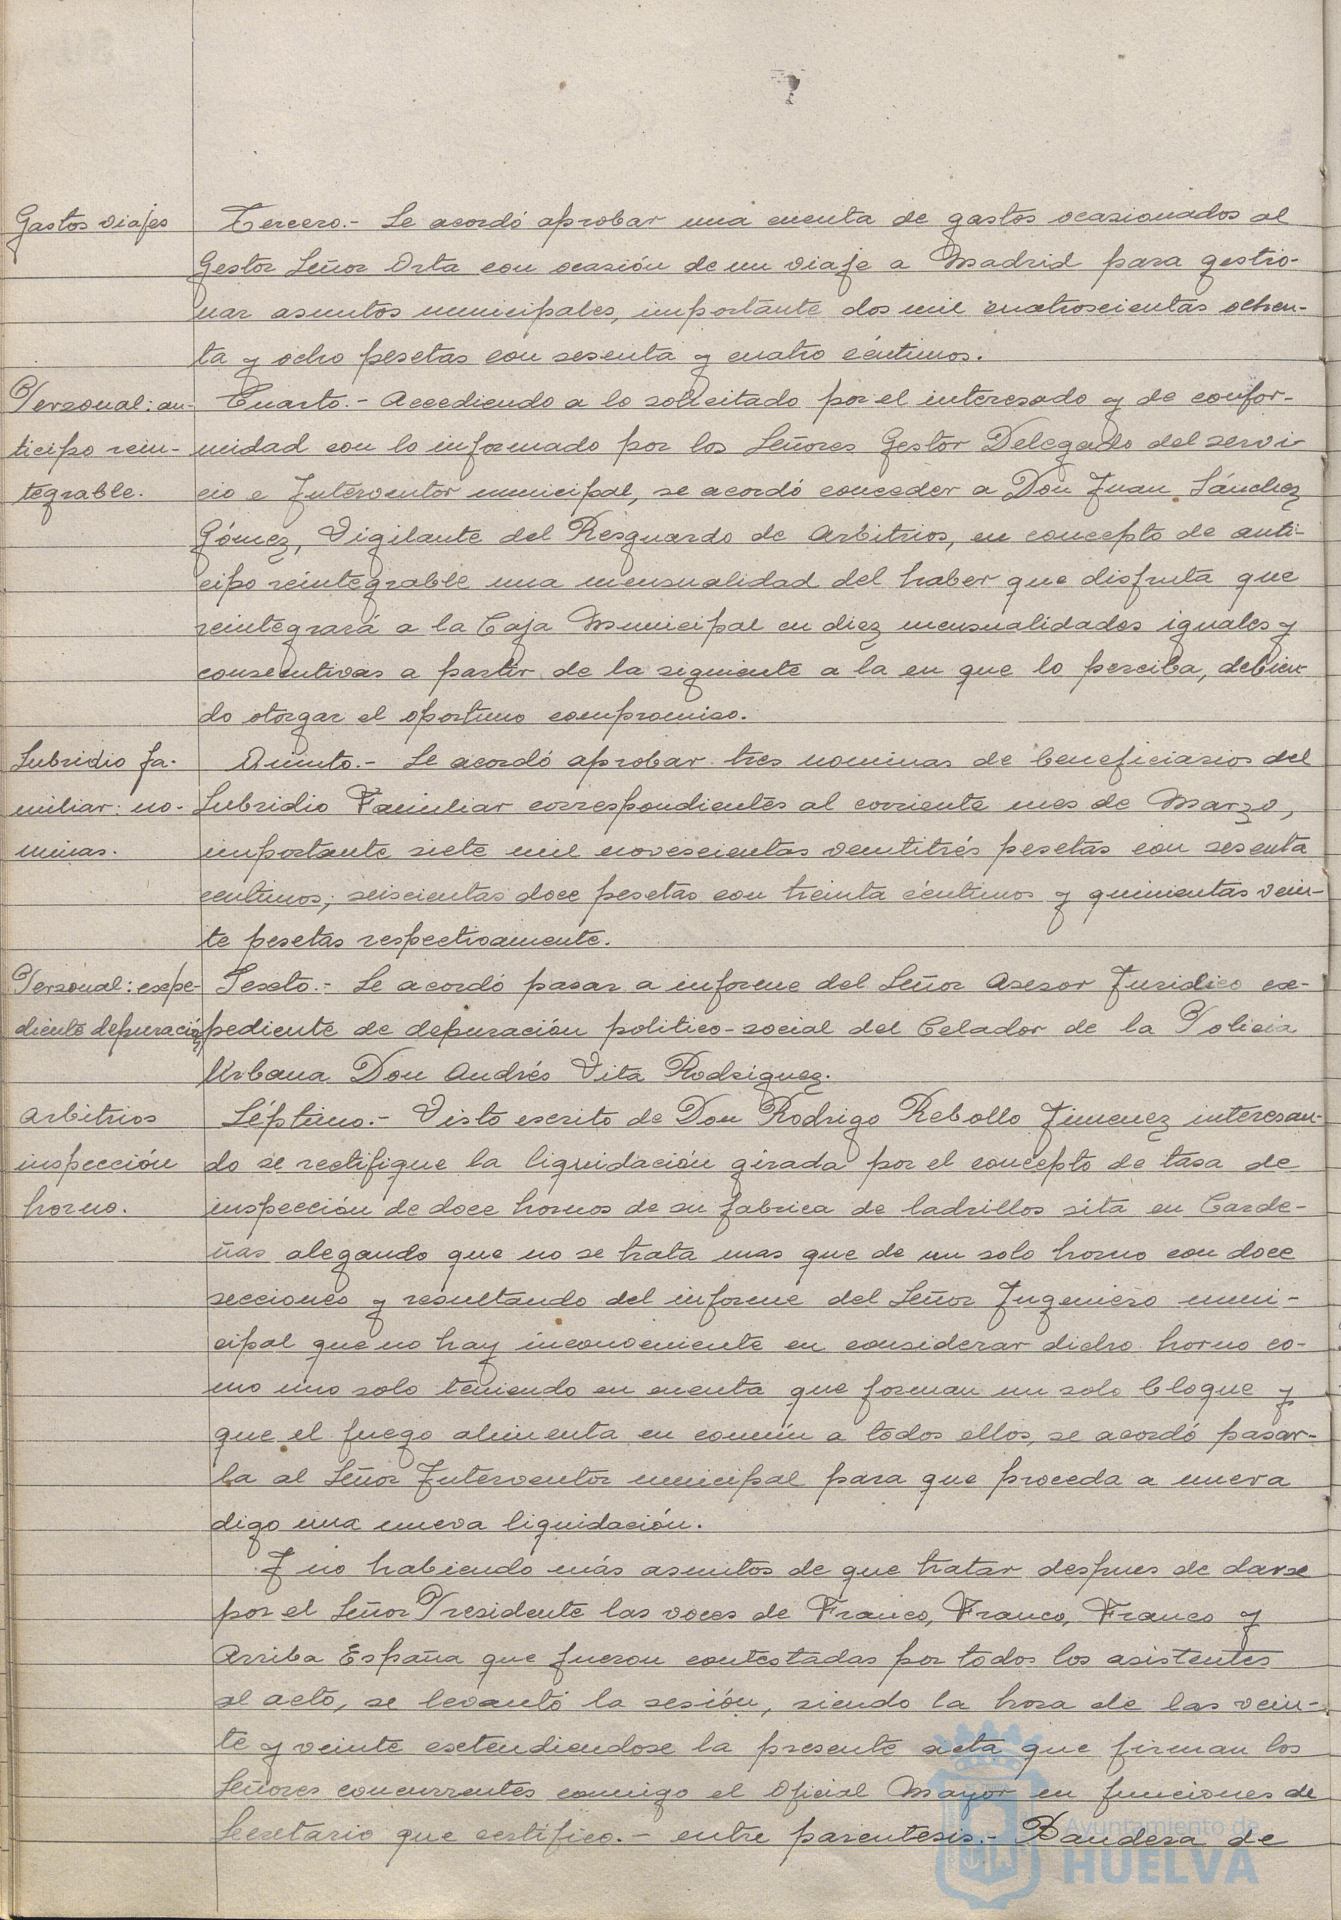 Gastos viajes
Tercero.- Se acordó aprobar una cuenta de gastos ocasionados al
Gestor Señor Orta con ocasión de un viaje a Madrid para gestio-
nar asuntos municipales, importante dos mil cuatroscientas ochen-
ta y ocho pesetas con sesenta y cuatro céntimos.
Personal: an-
ticipo rein-
tegrable.
Cuarto.- Accediendo a lo solicitado por el interesado y de confor-
midad con lo informado por los Señores Gestor Delegado del servi-
cio e Interventor municipal, se acordó conceder a Don Juan Sánchez
Gómez, Vigilante del Resguardo de Arbitrios, en concepto de anti-
cipo reintegrable una mensualidad del haber que disfruta que
reintegrará a la Caja Municipal en diez mensualidades iguales y
consecutivas a partir de la siguiente a la en que lo perciba, debien-
do otorgar el oportuno compromiso.
Subsidio fa-
miliar: no-
minas.
Quinto.- Se acordó aprobar tres nominas de beneficiarios del
Subsidio Familiar correspondientes al corriente mes de Marzo,
importante siete mil novescientas ventitrés pesetas con sesenta
centimos; seiscientas doce pesetas con treinta céntimos y quinientas vein-
te pesetas respectivamente.
Personal: expe-
diente depuración
Sexto.- Se acordó pasar a informe del Señor Asesor Juridico ex-
pediente de depuración politico-social del Celador de la Policia
Urbana Don Andrés Vita Rodriguez.
Arbitrios
inspección
horno.
Séptimo.- Visto escrito de Don Rodrigo Rebollo Jimenez interesan-
do se rectifique la liquidación girada por el concepto de tasa de
inspección de doce hornos de su fabrica de ladrillos sita en Carde-
ñas alegando que no se trata mas que de un solo horno con doce
secciones y resultando del informe del Señor Ingeniero muni-
cipal que no hay inconveniente en considerar dicho horno co-
mo uno solo teniendo en cuenta que forman un solo bloque y
que el fuego alimenta en común a todos ellos, se acordó pasar-
la al Señor Interventor municipal para que proceda a nueva
digo una nueva liquidación.
Y no habiendo más asuntos de que tratar despues de darse
por el Señor Presidente las voces de Franco, Franco, Franco y
Arriba España que fueron contestadas por todos los asistentes
al acto, se levantó la sesión, siendo la hora de las vein-
te y veinte extendiendose la presente acta que firman los
Señores concurrentes conmigo el Oficial Mayor en funciones de
Secretario que certifico.- entre parentesis.- Bandera de
Ayuntamiento de
HUELVA